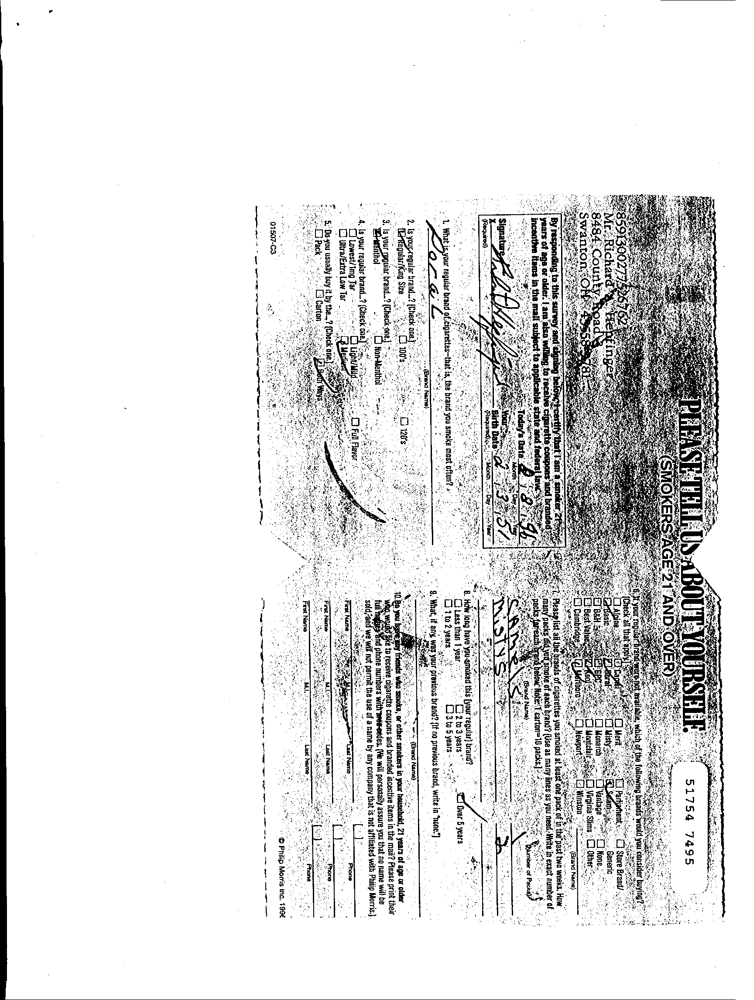 PLEASE TELL US ABOUT YOURSELF.
(SMOKERS AGE 21 AND OVER)
51754 7495
Mr. Richard
8484 County Road
Swanton OH
By responding to this survey and signing below, I certify that I am a smoker 21
years of age or older. I am also willing to receive cigarette coupons and branded
incentive items in the mail subject to applicable state and federal law.
Signature
X
(Required)
Today's Date
Month Day
Your Birth Date 2 3 51
(Required) Month Day Year
1. What is your regular brand of cigarettes—that is, the brand you smoke most often?
Doral
(Brand Name)
2. Is your regular brand...? (Check one)
Regular/King Size 100's 120's
3. Is your regular brand...? (Check one)
Menthol Non-Menthol
4. Is your regular brand...? (Check one)
Lowest/1mg Tar Light/Mild Full Flavor
Ultra/Extra Low Tar Medium
5. Do you usually buy it by the...? (Check one)
Pack Carton Both Ways
01507-C3
6. If your regular brand were not available, which of the following brands would you consider buying?
(Check all that apply)
Alpine Camel Merit Parliament Store Brand/
Basic Doral Misty Salem Generic
B&H GPC Monarch Vantage None
Best Value Kool Montclair Virginia Slims Other
Cambridge Marlboro Newport Winston
(Brand Name)
7. Please list all the brands of cigarettes you smoked at least one pack of in the past two weeks. How
many packs did you smoke of each brand? (Use as many lines as you need. Write in exact number of
packs for each brand below. Note: 1 carton=10 packs.)
(Brand Name) (Number of Packs)
Camels 1
Mistys 2
8. How long have you smoked this (your regular) brand?
Less than 1 year 2 to 3 years Over 5 years
1 to 2 years 3 to 5 years
9. What, if any, was your previous brand? (If no previous brand, write in "none.")
(Brand Name)
10. Do you have any friends who smoke, or other smokers in your household, 21 years of age or older
who would like to receive cigarette coupons and branded incentive items in the mail? Please print their
full names and phone numbers with area codes. (We will personally assure you that no name will be
sold, and we will not permit the use of a name by any company that is not affiliated with Philip Morris.)
( )
First Name M.I. Last Name Phone
( )
First Name M.I. Last Name Phone
( )
First Name M.I. Last Name Phone
© Philip Morris Inc. 1996